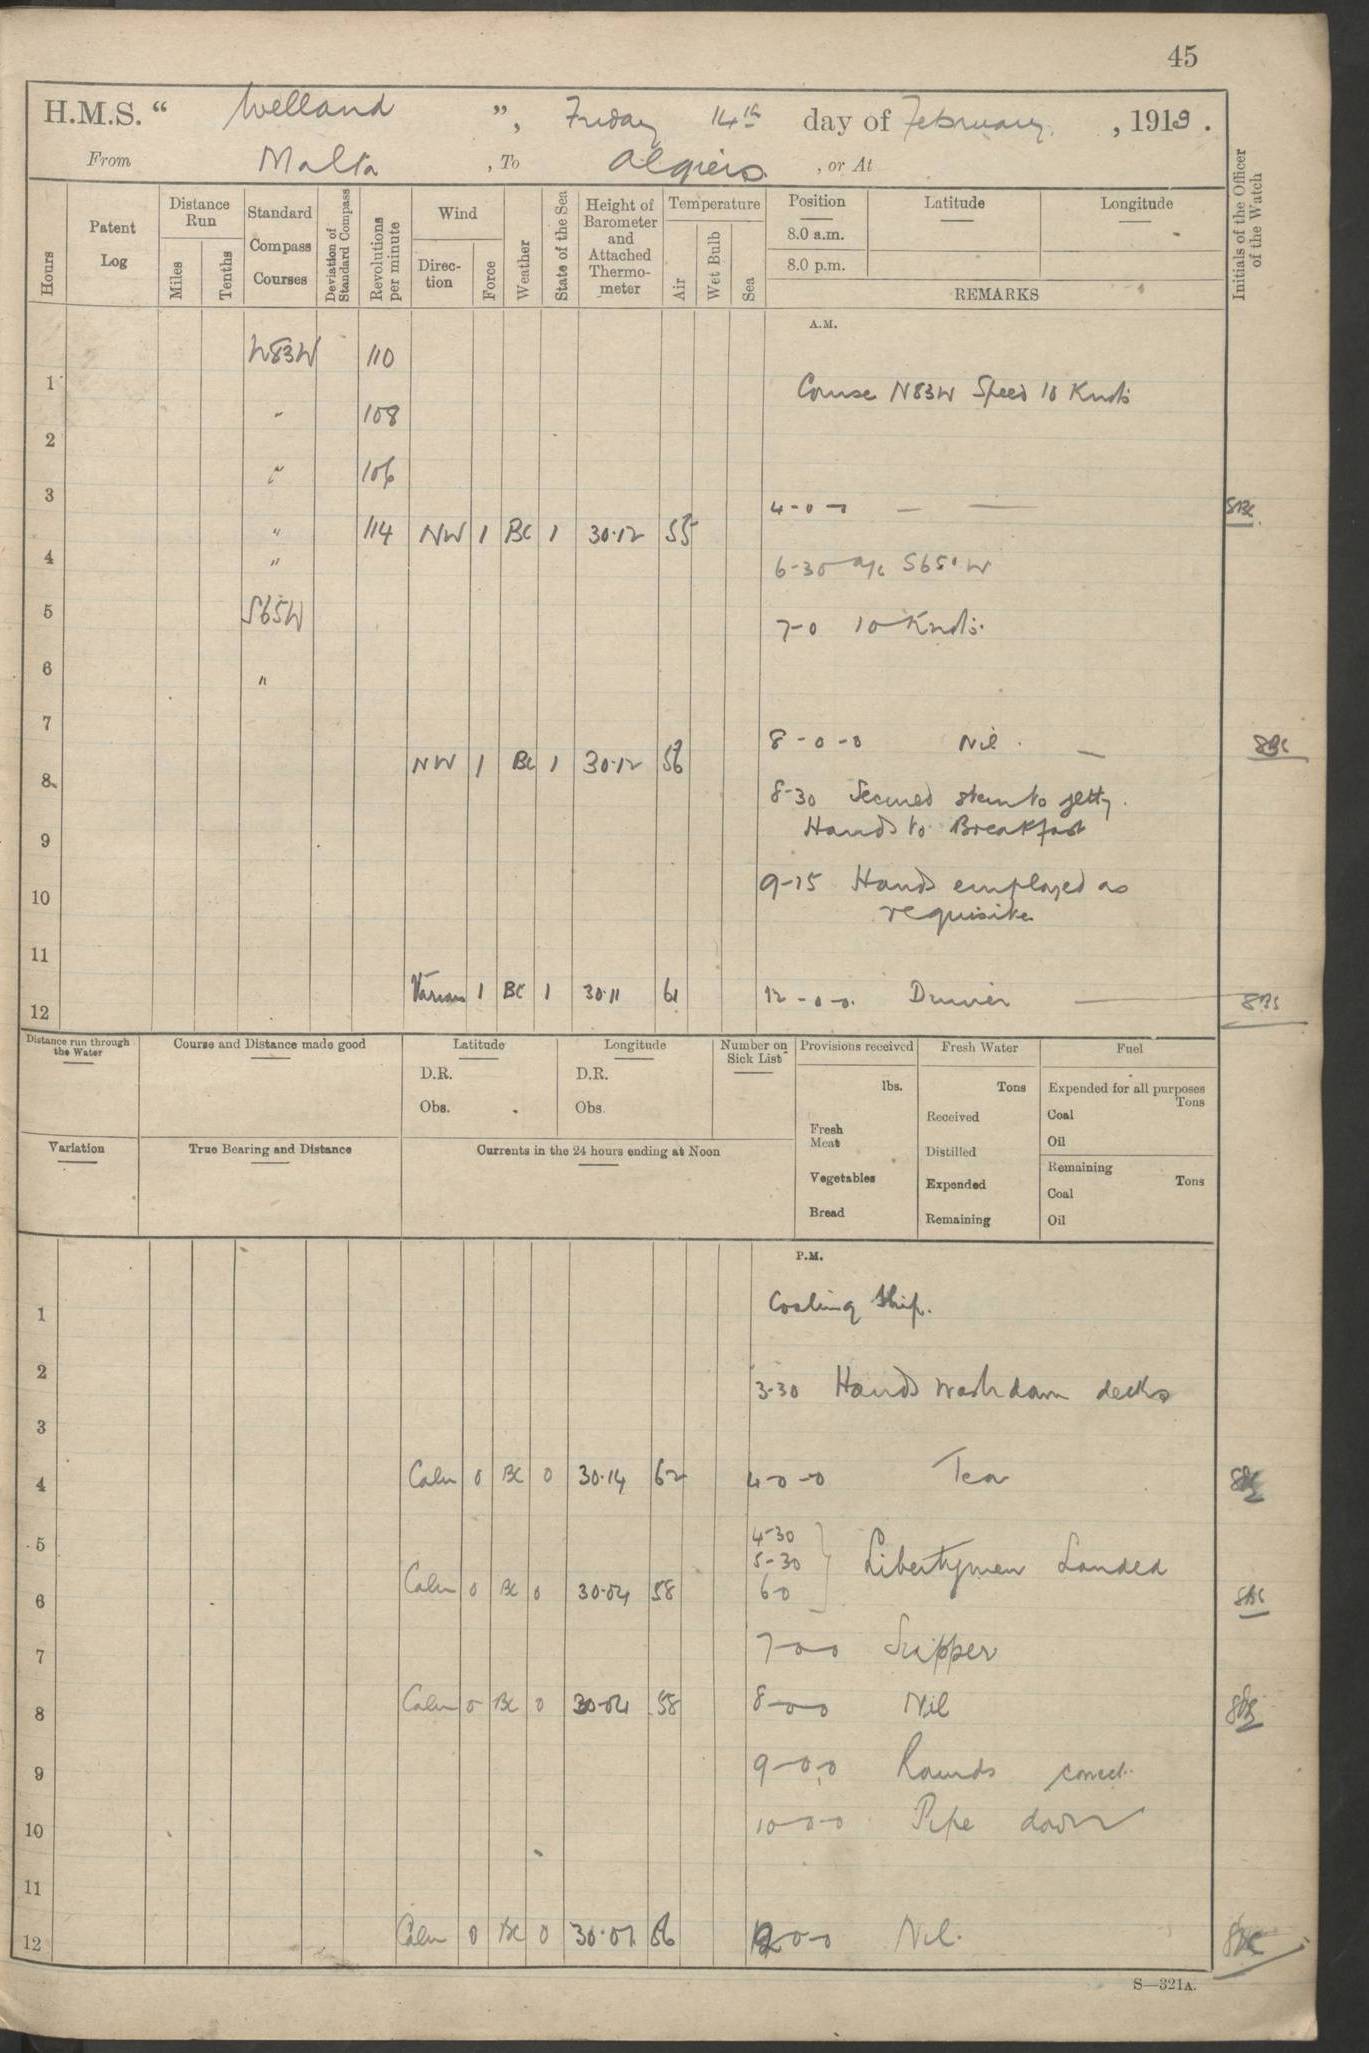 45
H.M.S. “ Welland ”, Friday 14th day of February, 1919.
From Malta, To Algiers, or At
Hours
Patent Log
Distance Run
Miles
Tenths
Standard Compass Courses
Deviation of Standard Compass
Revolutions per minute
Wind
Direction
Force
Weather
State of the Sea
Height of Barometer and Attached Thermometer
Temperature
Air
Wet Bulb
Sea
Position
8.0 a.m.
8.0 p.m.
Latitude
Longitude
REMARKS
Initials of the Officer of the Watch
A.M.
N83W 110
1 Course N83W Speed 10 Knots
" 108
2
" 106
3
4-0-0 —
" 114 NW 1 BC 1 30.12 55
4 " 6-30 a/c S65°W
5 S65W 7-0 10 Knots.
6
"
7
8-0-0 Nil. —
NW 1 BC 1 30.12 56
8
8-30 Secured stern to jetty.
Hands to Breakfast
9
9-15 Hands employed as
requisite
10
11
Various 1 BC 1 30.11 61 12-0-0. Dinner
12
Distance run through the Water
Course and Distance made good
Latitude
D.R.
Obs.
Longitude
D.R.
Obs.
Number on Sick List
Provisions received
lbs.
Fresh Meat
Vegetables
Bread
Fresh Water
Tons
Received
Distilled
Expended
Remaining
Fuel
Expended for all purposes
Tons
Coal
Oil
Remaining
Tons
Coal
Oil
Variation
True Bearing and Distance
Currents in the 24 hours ending at Noon
P.M.
1 Coaling Ship.
2 3-30 Hands wash down decks
3
4 Calm 0 BC 0 30.14 62 4-0-0 Tea
4-30
5 5-30 } Libertymen Landed
6 Calm 0 BC 0 30.04 58 6-0
7 7-0-0 Supper
8 Calm 0 BC 0 30.04 58 8-0-0 Nil
9 9-0-0 Rounds correct.
10 10-0-0 Pipe down
11
12 Calm 0 BC 0 30.07 56 12-0-0 Nil.
S—321A.